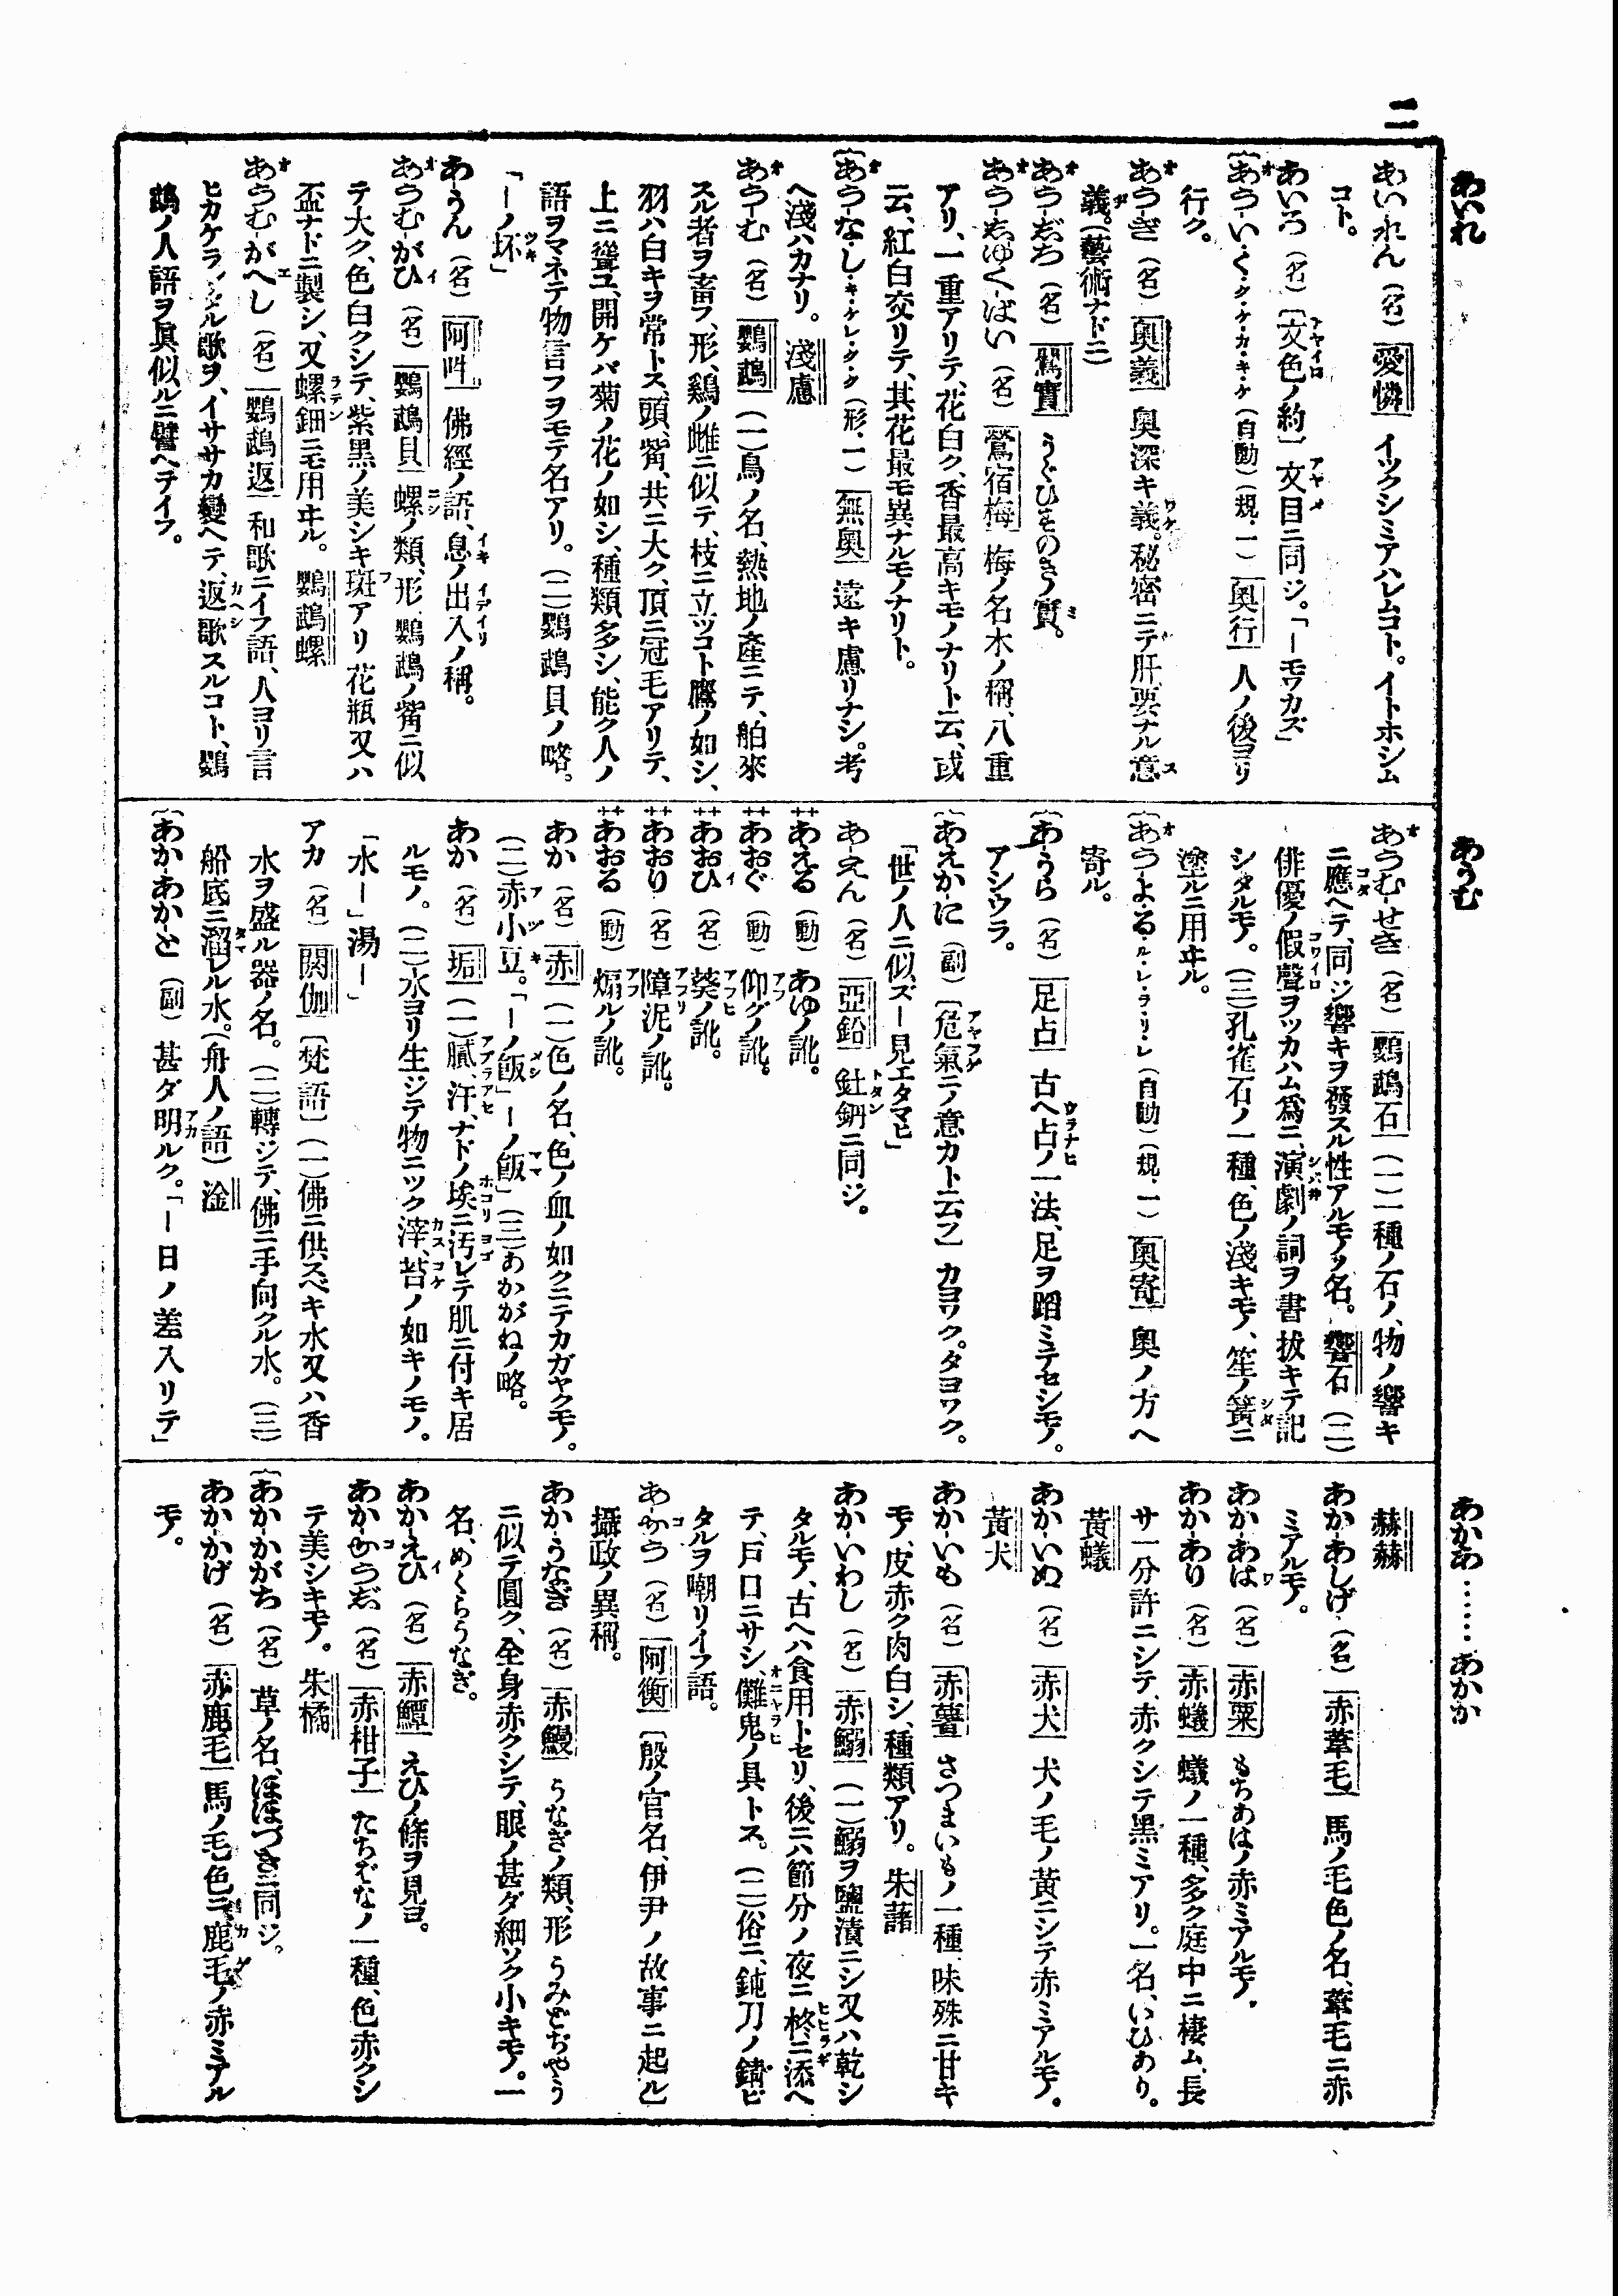 二
あいれ
あいれん (名) 愛憐 イツクシミアハレムコト。イトホシム
コト。
あいろ (名) 〔文色ノ約〕 文目ニ同ジ。「―モワカズ」
あう-い・く・ク・ケ・カ・キ・ケ (自動) (規.一) 奥行 人ノ後ヨリ
行ク。
あう-ぎ (名) 奥義 奥深キ義。秘密ニテ肝要ナル意
義。(藝術ナドニ)
あう-ぢち (名) 鶯實 うぐひすのきノ實。
あう-ゐゆくばい (名) 鶯宿梅 梅ノ名木ノ稱、八重
アリ、一重アリテ、花白ク、香最高キモノナリト云、或
云、紅白交リテ、其花最モ異ナルモノナリト。
あう-な・し・キ・ケレ・ク・ク (形.一) 無奥 遠キ慮リナシ。考
ヘ淺ハカナリ。 淺慮
あう-む (名) 鸚鵡 (一)鳥ノ名、熱地ノ産ニテ、舶來
スル者ヲ畜フ、形、鷄ノ雌ニ似テ、枝ニ立ツコト鷹ノ如シ、
羽ハ白キヲ常トス、頭、觜、共ニ大ク、頂ニ冠毛アリテ、
上ニ聳ユ、開ケバ菊ノ花ノ如シ、種類多シ、能ク人ノ
語ヲマネテ物言フヲモテ名アリ。(二)鸚鵡貝ノ略。
「―ノ坏」
あ-うん (名) 阿吽 佛經ノ語、息ノ出入ノ稱。
あうむ-がひ (名) 鸚鵡貝 螺ノ類、形、鸚鵡ノ觜ニ似
テ大ク、色白クシテ、紫黒ノ美シキ斑アリ 花瓶又ハ
盃ナドニ製シ、又螺鈿ニモ用ヰル。 鸚鵡螺
あうむ-がへし (名) 鸚鵡返 和歌ニイフ語、人ヨリ言
ヒカケラレタル歌ヲ、イササカ變ヘテ、返歌スルコト、鸚
鵡ノ人語ヲ眞似ルニ譬ヘテイフ。
あうむ
あうむ-せき (名) 鸚鵡石 (一)一種ノ石ノ、物ノ響キ
ニ應ヘテ、同ジ響キヲ發スル性アルモノノ名。 響石 (二)
俳優ノ假聲ヲツカハム爲ニ、演劇ノ詞ヲ書拔キテ記
シタルモノ。(三)孔雀石ノ一種、色ノ淺キモノ、笙ノ簧ニ
塗ルニ用ヰル。
あう-よ・る・ル・レ・ラ・リ・レ (自動) (規.一) 奥寄 奥ノ方ヘ
寄ル。
あ-うら (名) 足占 古ヘ占ノ一法、足ヲ蹈ミテセシモノ。
アシウラ。
あえか-に (副) 〔危氣ニノ意カト云フ〕 カヨワク。タヨワク。
「世ノ人ニ似ズ―見エタマヒ」
あ-えん (名) 亞鉛 釷鈉ニ同ジ。
あえる (動) あゆノ訛。
あおぐ (動) 仰グノ訛。
あおひ (名) 葵ノ訛。
あおり (名) 障泥ノ訛。
あおる (動) 煽ルノ訛。
あか (名) 赤 (一)色ノ名、色ノ血ノ如クニテカガヤクモノ。
(二)赤小豆。「―ノ飯」―ノ飯」(三)あかがねノ略。
あか (名) 垢 (一)膩、汗、ナドノ埃ニ汚レテ肌ニ付キ居
ルモノ。(二)水ヨリ生ジテ物ニツク滓、苔ノ如キノモノ。
「水―」湯―」
アカ (名) 閼伽 〔梵語〕 (一)佛ニ供スベキ水又ハ香
水ヲ盛ル器ノ名。(二)轉ジテ、佛ニ手向クル水。(三)
船底ニ溜レル水。(舟人ノ語) 淦
あか-あかと (副) 甚ダ明ルク。「―日ノ差入リテ」
あかあ……あかか
赫赫
あか-あしげ (名) 赤葦毛 馬ノ毛色ノ名、葦毛ニ赤
ミアルモノ。
あか-あは (名) 赤粟 もちあはノ赤ミアルモノ。
あか-あり (名) 赤蟻 蟻ノ一種、多ク庭中ニ棲ム、長
サ一分許ニシテ、赤クシテ黒ミアリ。一名、いひあり。
黄蟻
あか-いぬ (名) 赤犬 犬ノ毛ノ黄ニシテ赤ミアルモノ。
黄犬
あか-いも (名) 赤薯 さつまいもノ一種、味殊ニ甘キ
モノ、皮赤ク肉白シ、種類アリ。 朱藷
あか-いわし (名) 赤鰯 (一)鰯ヲ鹽漬ニシ又ハ乾シ
タルモノ、古ヘハ食用トセリ、後ニハ節分ノ夜ニ柊ニ添ヘ
テ、戸口ニサシ、儺鬼ノ具トス。(二)俗ニ、鈍刀ノ錆ビ
タルヲ嘲リイフ語。
あ-かう (名) 阿衡 〔殷ノ官名、伊尹ノ故事ニ起ル〕
攝政ノ異稱。
あか-うなぎ (名) 赤鰻 うなぎノ類、形うみどぢやう
ニ似テ圓ク、全身赤クシテ、眼ノ甚ダ細ソク小キモノ。一
名、めくらうなぎ。
あか-えひ (名) 赤鱏 えひノ條ヲ見ヨ。
あか-かうじ (名) 赤柑子 たちばなノ一種、色赤クシ
テ美シキモノ。 朱橘
あか-かがち (名) 草ノ名、ほほづきニ同ジ。
あか-かげ (名) 赤鹿毛 馬ノ毛色ニ、鹿毛ノ赤ミアル
モノ。